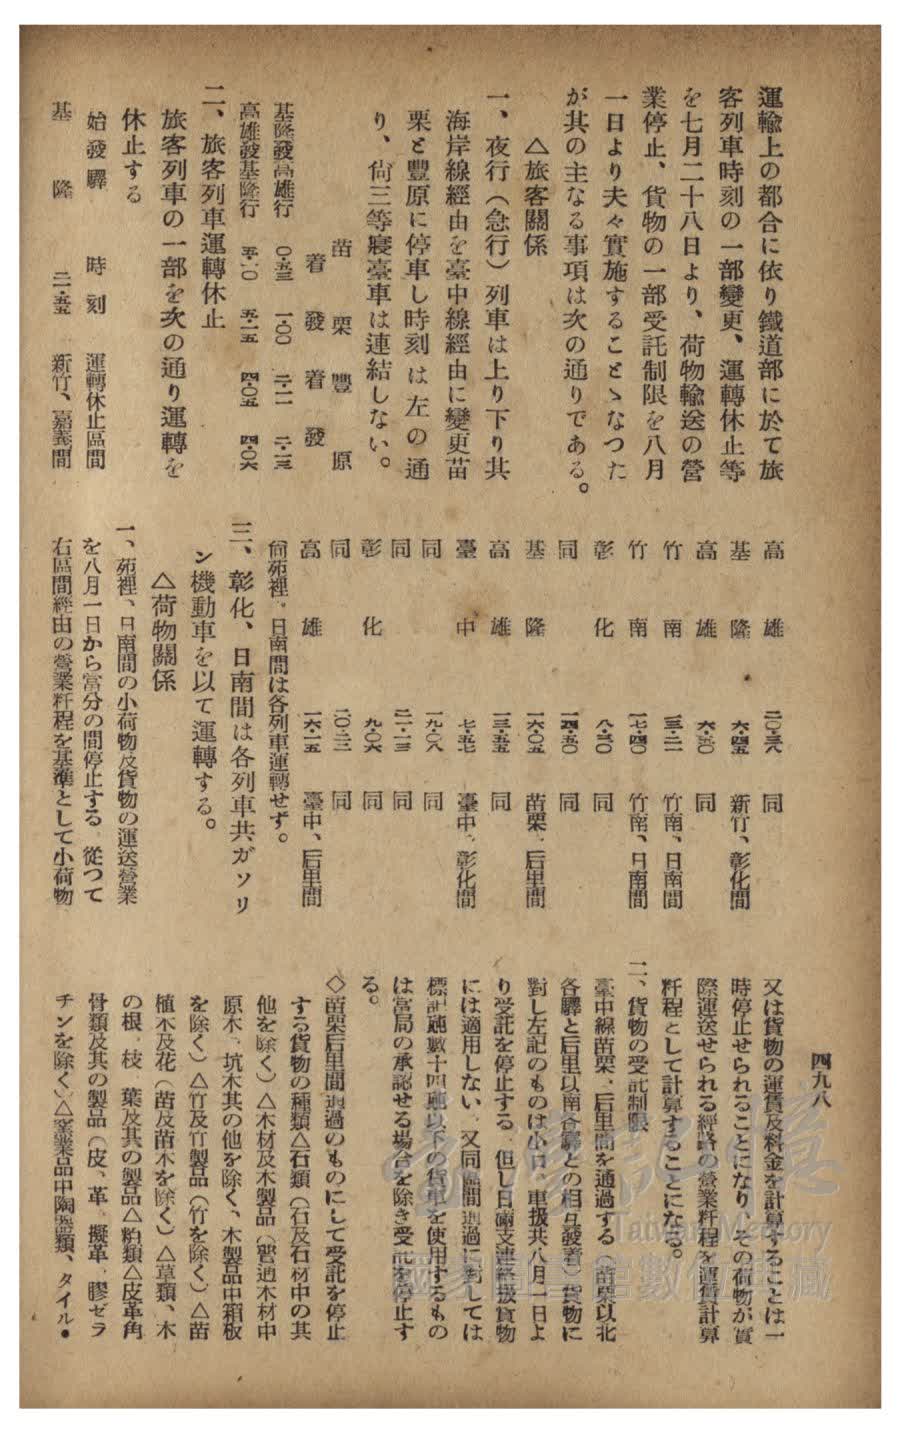 四九八
運輸上の都合に依り鐵道部に於て旅
客列車時刻の一部變更、運轉休止等
を七月二十八日より、荷物輸送の營
業停止、貨物の一部受託制限を八月
一日より夫々實施することゝなつた
が其の主なる事項は次の通りである。
△旅客關係
一、夜行（急行）列車は上り下り共
海岸線經由を臺中線經由に變更苗
栗と豐原に停車し時刻は左の通
り、尙三等寢臺車は連結しない。
苗栗 豐原
着 發 着 發
基隆發高雄行 〇・五三 一・〇〇 二・一一 二・一三
高雄發基隆行 五・一〇 五・一五 四・〇五 四・〇六
二、旅客列車運轉休止
旅客列車の一部を次の通り運轉を
休止する
始發驛 時刻 運轉休止區間
基隆 新竹、嘉義間
高雄 二〇・三八 同
基隆 六・四五 新竹、彰化間
高雄 同
竹南 竹南、日南間
竹南 一七・四〇 竹南、日南間
彰化 同
同 一四・五〇 同
基隆 一六・〇五 苗栗、后里間
高雄 一三・五五 同
臺中 七・五七 臺中、彰化間
同 一九・〇八 同
同 二一・一三 同
彰化 九・〇六 同
同 二〇・二三 同
高雄 一六・一五 臺中、后里間
尙苑裡、日南間は各列車運轉せず。
三、彰化、日南間は各列車共ガソリ
ン機動車を以て運轉する。
△荷物關係
一、苑裡、日南間の小荷物及貨物の運送營業
を八月一日から當分の間停止する、從つて
右區間經由の營業粁程を基準として小荷物
又は貨物の運賃及料金を計算することは一
時停止せられることになり、その荷物が實
際運送せられる經路の營業粁程を運賃計算
粁程として計算することになる。
二、貨物の受託制限
臺中線苗栗、后里間を通過する（苗栗以北
各驛と后里以南各驛との相互發着）貨物に
對し左記のものは小口、車扱共八月一日よ
り受託を停止する、但し日滿支連絡扱貨物
には適用しない、又同區間通過に對しては
標記瓲數十四瓲以下の貨車を使用するもの
は當局の承認せる場合を除き受託を停止す
る。
◇苗栗后里間通過のものにして受託を停止
する貨物の種類△石類（石及石材中の其
他を除く）△木材及木製品（普通木材中
原木、坑木其の他を除く、木製品中箱板
を除く）△竹及竹製品（竹を除く）△苗
植木及花（苗及苗木を除く）△草類、木
の根、枝、葉及其の製品△粕類△皮革角
骨類及其の製品（皮、革、擬革、膠ゼラ
チンを除く）△窯業品中陶器類、タイル・
臺灣記憶
Taiwan Memory
國家圖書館數位典藏